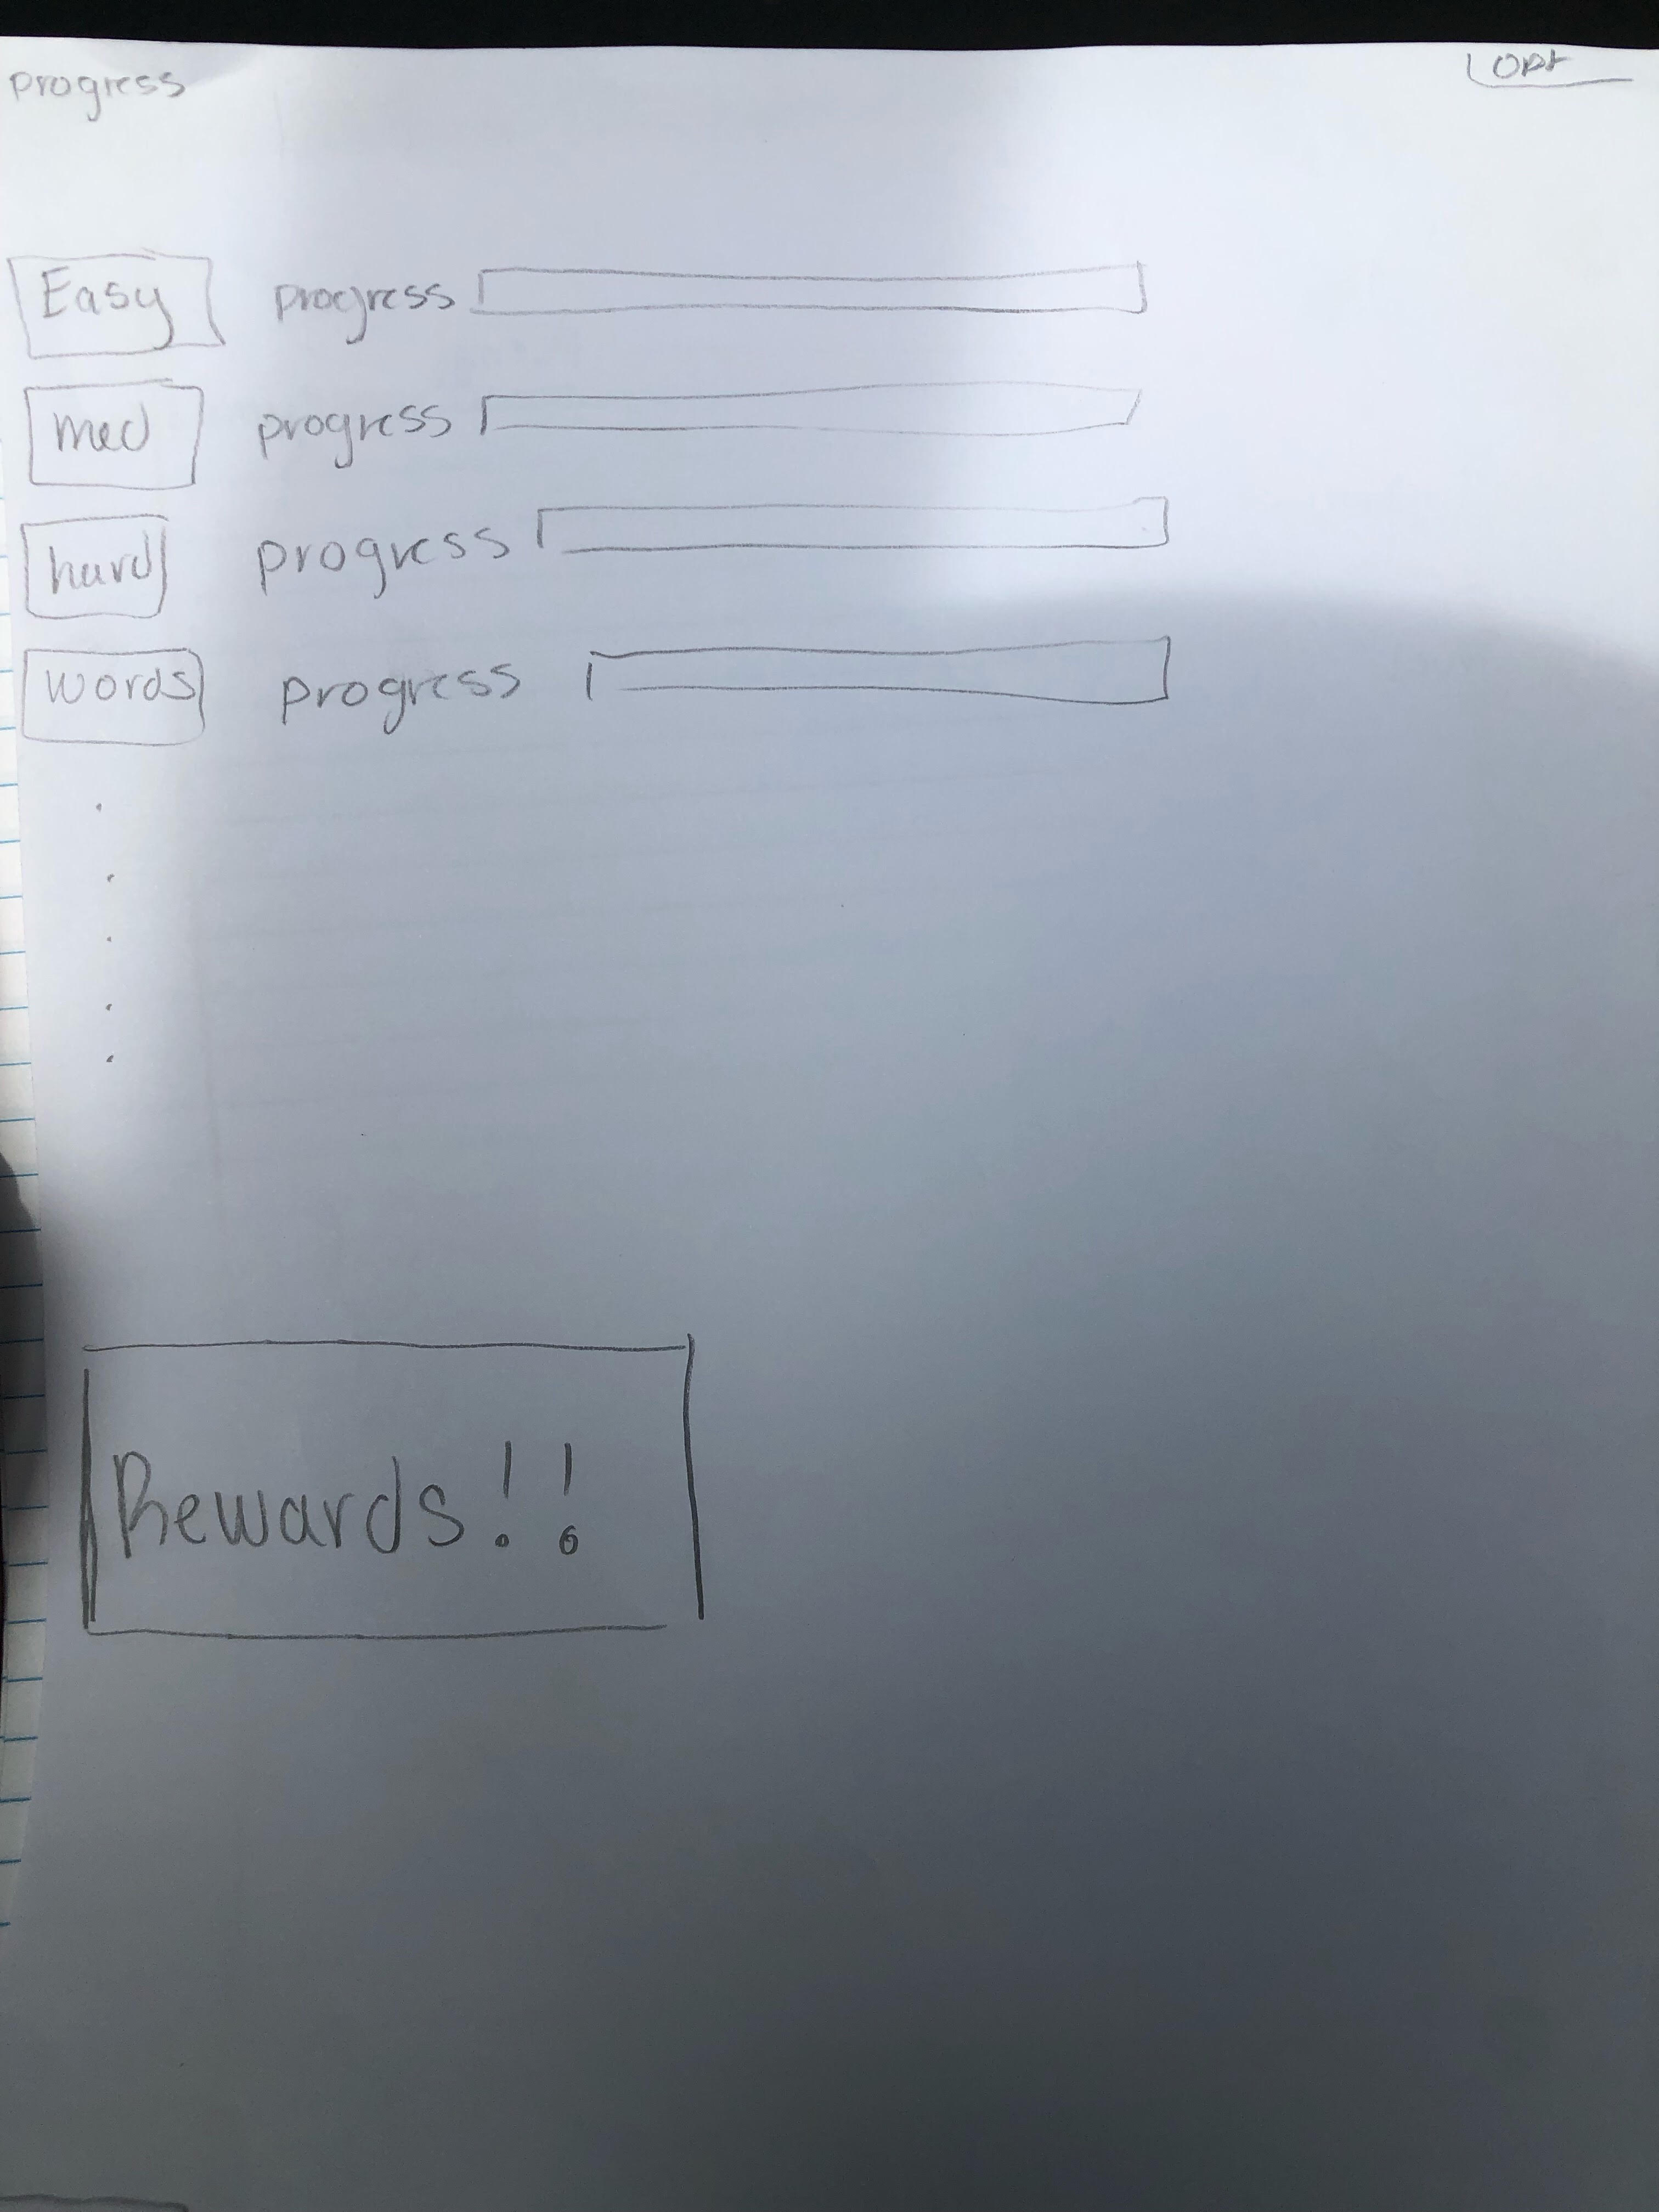 progress
opt
Easy progress
med progress
hard progress
words progress
Rewards!!